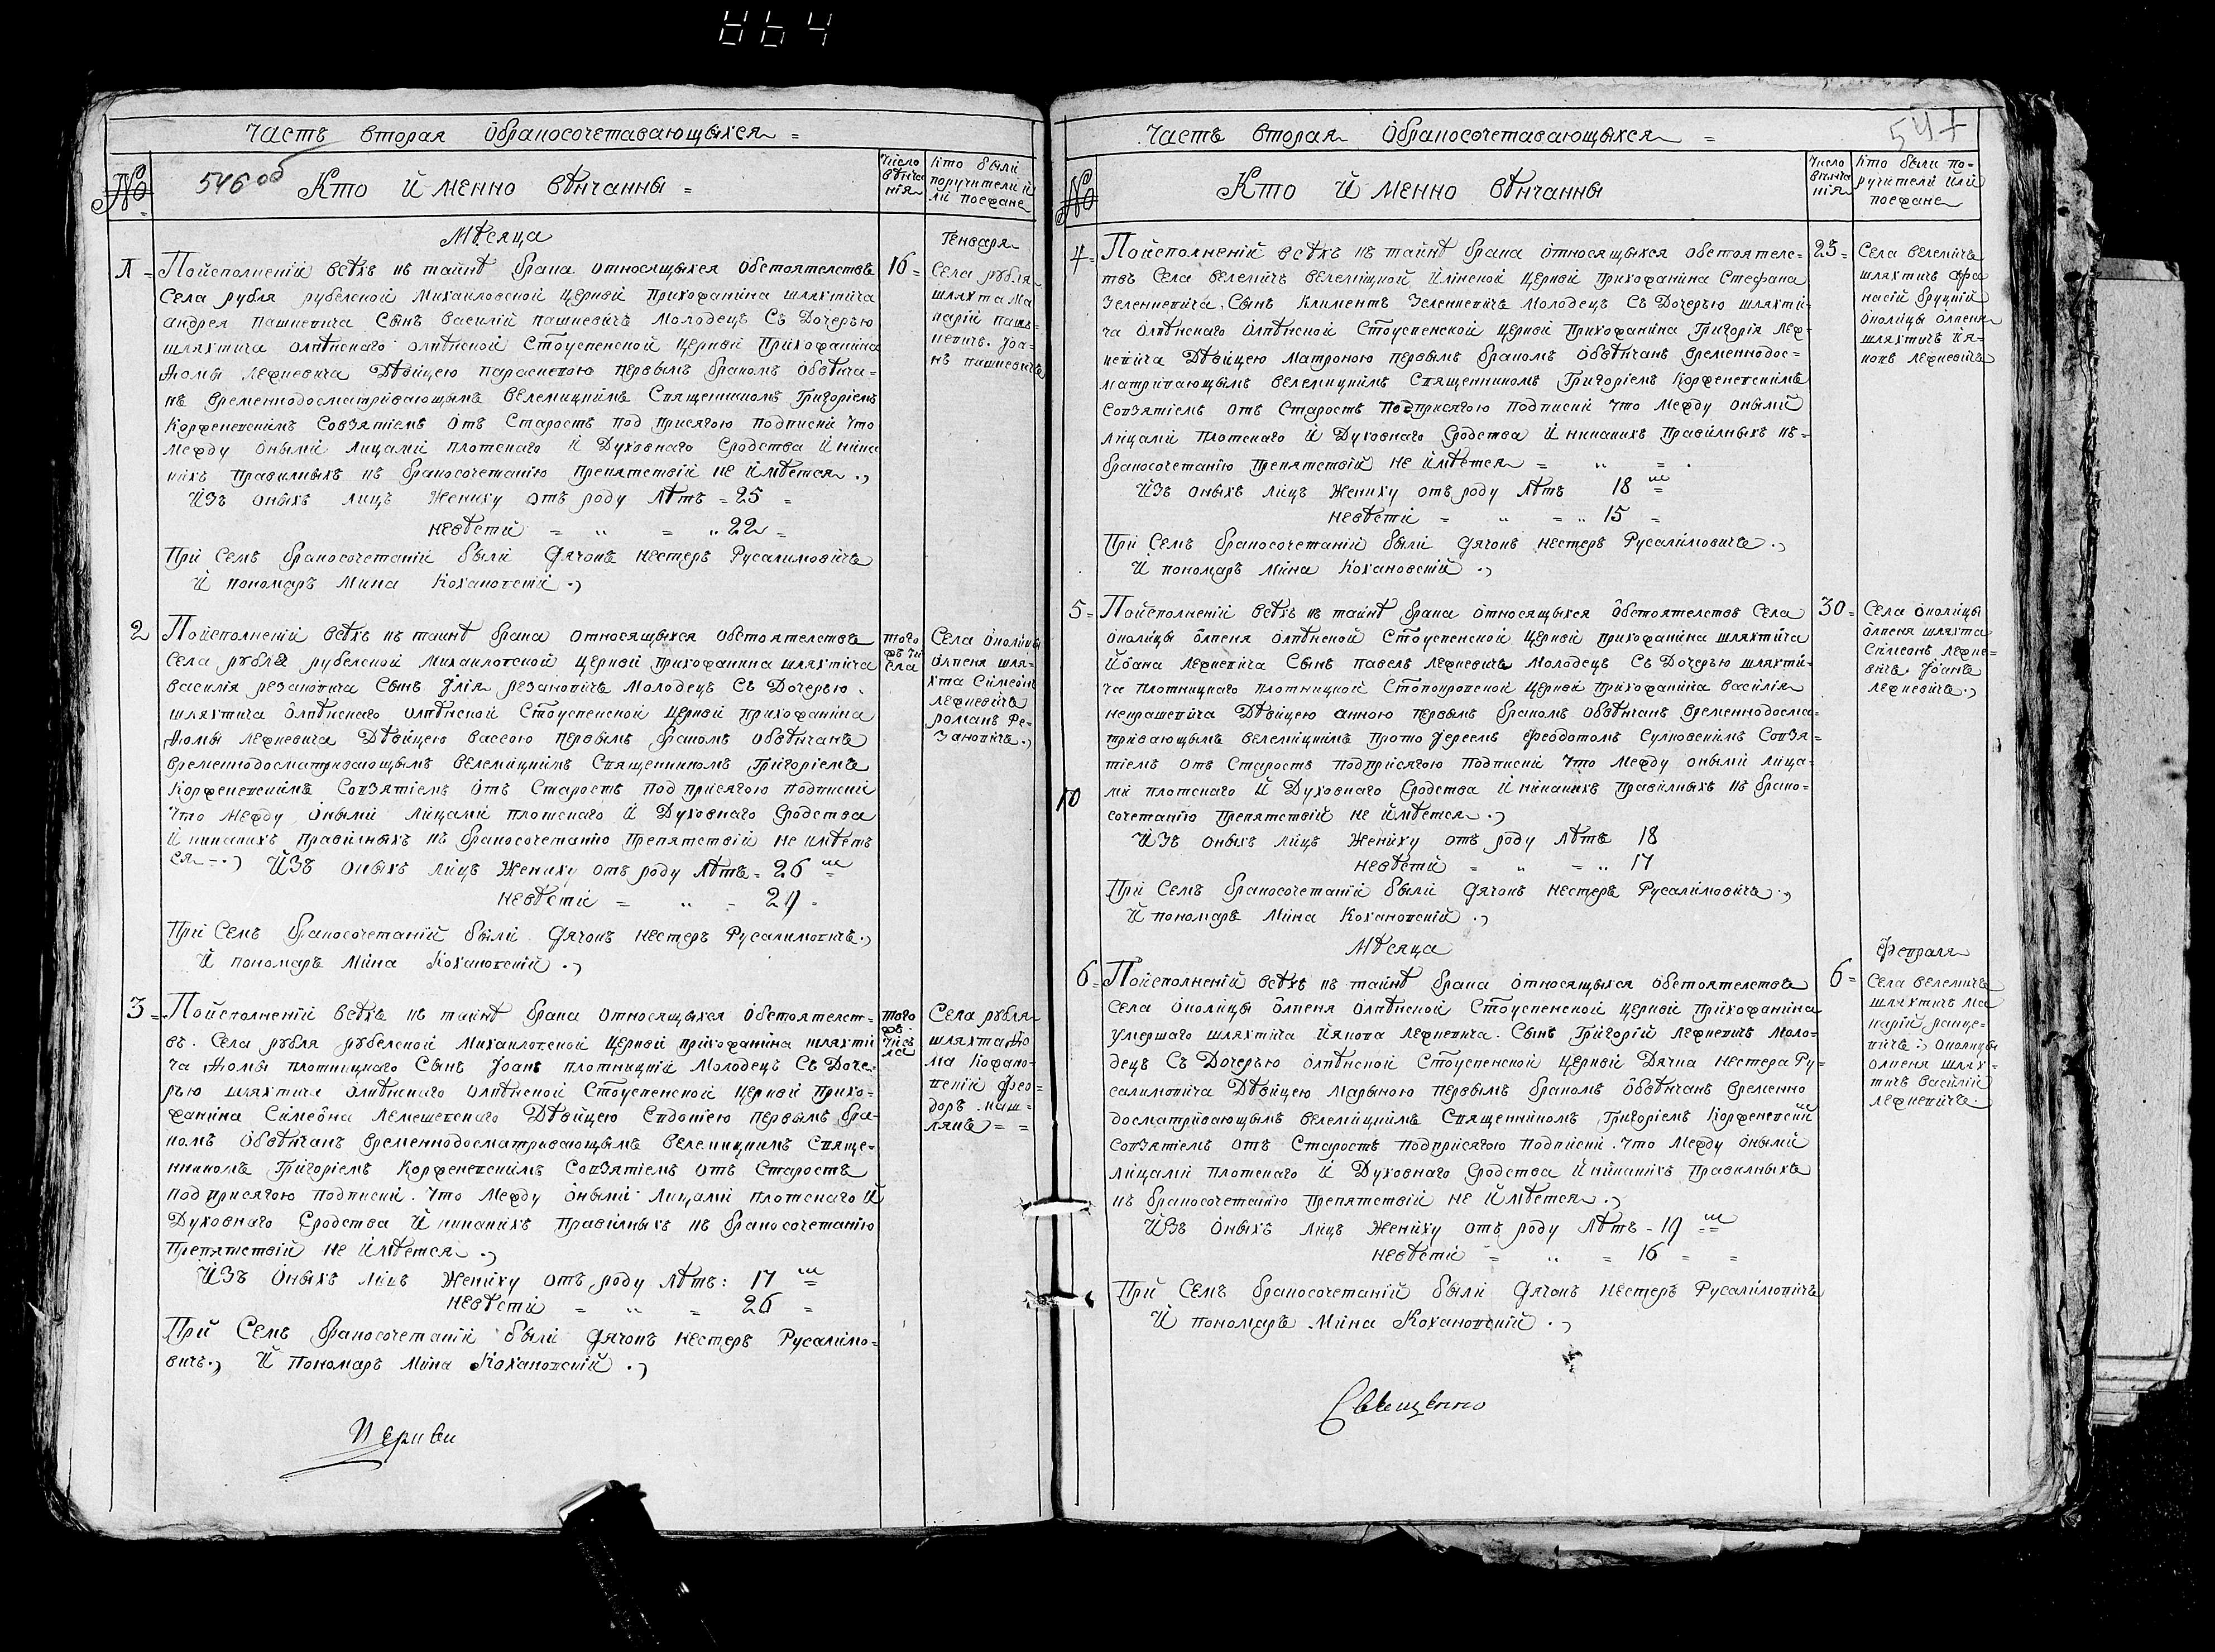 864
Часть вторая обракосочетавающыхся
546 об
№
Кто и менно вѣнчанны
Число вѣнча нія
Кто были поручители и ли поезжане
Мѣсяца
Генваря
1
Поисполненіи всѣхъ къ тайнѣ брака относящыхся обстоятелствъ
Села рубля рубелской Михаиловской Церкви Прихожанина шляхтича
андрея пашкевича Сынъ василій пашкевичъ Молодецъ Съ Дочерью
шляхтича олпѣнскаго олпѣнской Стоуспенской Церкви Прихожанина
Ѳомы Лежневича Дѣвицею параскевою первымъ бракомъ обвѣнча-
нъ временнодосматривающымъ велемицкимъ Священникомъ Григоріемъ
Корженевскимъ Совзятіемъ отъ Старостъ под присягою подписки что
Между оными Лицами плотскаго и Духовнаго Сродства и ника
кихъ правилныхъ къ бракосочетанію препятствій не имѣется
Изъ оныхъ лицъ Жениху отъ роду Лѣтъ 25
невѣсти 22
При Семъ бракосочетаніи были дячокъ нестеръ Русалимовичъ
И пономаръ Мина Кохановскій
16
Села рубля
шляхта Ма
карій паш-
кевичъ. Іоа-
нъ пашкевичъ
2
Поисполненіи всѣхъ къ тайнѣ брака относящыхся обстоятелствъ
Села рубля рубелской Михаиловской Церкви прихожанина шляхтича
василія резановича Сынъ Ілія резановичъ Молодецъ Съ Дочерью
шляхтича олпѣнскаго олпѣнской Стоуспенской Церкви прихожанина
Ѳомы Лежневича Дѣвицею вассою первымъ бракомъ обвѣнчанъ
временнодосматривающымъ велемицкимъ Священникомъ Григоріемъ
Корженевскимъ Совзятіемъ отъ Старостъ под присягою подписки
что Между оными Лицами плотскаго и Духовнаго Сродства
И никакихъ правилныхъ къ бракосочетанію препятствій не имѣет
ся Изъ оныхъ лицъ Жениху отъ роду Лѣтъ 26
невѣсти 29
При Семъ бракосочетаніи были дячокъ нестеръ Русалимовичъ
И пономаръ Мина Кохановскій
того жъ чи сла
Села околицы
олпеня шля-
хта Симеонъ
Лежневичъ
романъ Ре-
зановичъ
3
Поисполненіи всѣхъ къ тайнѣ брака относящыхся обстоятелст-
въ. Села рубля рубелской Михаиловской Церкви прихожанина шляхти
ча Ѳомы плотницкаго Сынъ Іоанъ плотницкій Молодецъ Съ Доче-
рью шляхтича олпѣнскаго олпѣнской Стоуспенской Церкви прихо-
жанина Симеона Лемешевскаго Дѣвицею Евдокіею первымъ бра-
комъ обвѣнчанъ временнодосматривающымъ велемицкимъ Свяще-
нникомъ Григоріемъ Корженевскимъ Совзятіемъ отъ Старостъ
под присягою подписки. что Между оными Лицами плотскаго и
Духовнаго Сродства И никакихъ правилныхъ къ бракосочетанію
препятствій не имѣется
Изъ оныхъ лицъ Жениху отъ роду Лѣтъ: 17
невѣсти 26
При Семъ бракосочетаніи были дячокъ нестеръ Русалимо-
вичъ И пономаръ Мина Кохановскій
того жъ числа
Села рубля
шляхта Ѳо
ма Кожано-
вскій Фео-
доръ маш-
лякъ
Церкви
Часть вторая обракосочетавающыхся
547
№
Кто и менно вѣнчанны
Число вѣнча нія
Кто были по-
ручители или
поезжане
4
Поисполненіи всѣхъ къ тайнѣ брака относящыхся обстоятелс-
твъ Села велемичъ велемицкой Илинской Церкви Прихожанина Стефана
Зеленкевича. Сынъ Климентъ Зеленкевичъ Молодецъ Съ Дочерью шляхти-
ча олпѣнскаго олпѣнской Стоуспенской Церкви прихожанина Григорія Леж-
невича Дѣвицею Матроною первымъ бракомъ обвѣнчанъ временнодос-
матривающымъ велемицкимъ Священникомъ Григоріемъ Корженевскимъ
Совзятіемъ отъ Старостъ подприсягою подписки что Между оными
Лицами плотскаго и Духовнаго Сродства И никакихъ правилныхъ къ-
бракосочетанію препятствій не имѣется
Изъ оныхъ лицъ Жениху отъ роду Лѣтъ 18
невѣсти 15
При Семъ бракосочетаніи были дячокъ нестеръ Русалимовичъ
И пономаръ Мина Кохановскій
25
Села велемичъ
шляхтичъ афа
насій бруцкій
околицы олпеня
шляхтичъ Ия-
ковъ Лежневичъ
5
Поисполненіи всѣхъ къ тайнѣ брака относящыхся обстоятелствъ Села
околицы олпеня олпѣнской Стоуспенской Церкви прихожанина шляхтича
Иоана Лежневича Сынъ павелъ Лежневичъ Молодецъ Съ Дочерью шляхти-
ча плотницкаго плотницкой Стопокровской Церкви прихожанина василія
некрашевича Дѣвицею анною первымъ бракомъ обвѣнчанъ временнодосма-
тривающымъ велемицкимъ Прото Іереемъ Феодотомъ Сулковскимъ Совзя-
тіемъ отъ Старостъ подприсягою подписки что Между оными лица-
ми плотскаго и Духовнаго Сродства И никакихъ правилныхъ къ брако-
сочетанію препятствій не имѣется
Изъ оныхъ лицъ Жениху отъ роду Лѣтъ 18
невѣсти 17
При Семъ бракосочетаніи были дячокъ нестеръ Русалимовичъ
И пономаръ Мина Кохановскій
30
Села околицы
олпеня шляхта
Симеонъ Лежне-
вичъ Іоанъ
Лежневичъ
10
Мѣсяца
Февраля
6
Поисполненіи всѣхъ къ тайнѣ брака относящыхся обстоятелствъ
Села околицы олпеня олпѣнской Стоуспенской Церкви прихожанина
умершаго шляхтича Иякова Лежневича. Сынъ Григорій Лежневичъ Моло-
децъ Съ Дочерью олпѣнской Стоуспенской Церкви Дячка нестера Ру-
салимовича Дѣвицею Марьяною первымъ бракомъ обвѣнчанъ временно
досматривающымъ велемицкимъ Священникомъ Григоріемъ Корженевский
Совзятіемъ отъ Старостъ подприсягою подписки. что Между оными
Лицами плотскаго и Духовнаго Сродства И никакихъ правилныхъ
къ бракосочетанію препятствій не имѣется
Изъ оныхъ лицъ Жениху отъ роду Лѣтъ - 19
невѣсти 16
При Семъ бракосочетаніи были дячокъ нестеръ Русалимовичъ
И пономаръ Мина Кохановскій
6
Села велемичъ
шляхтичъ Ма
карій ранце-
вичъ околицы
олпеня шлях-
тичъ василій
Лежневичъ
Священно